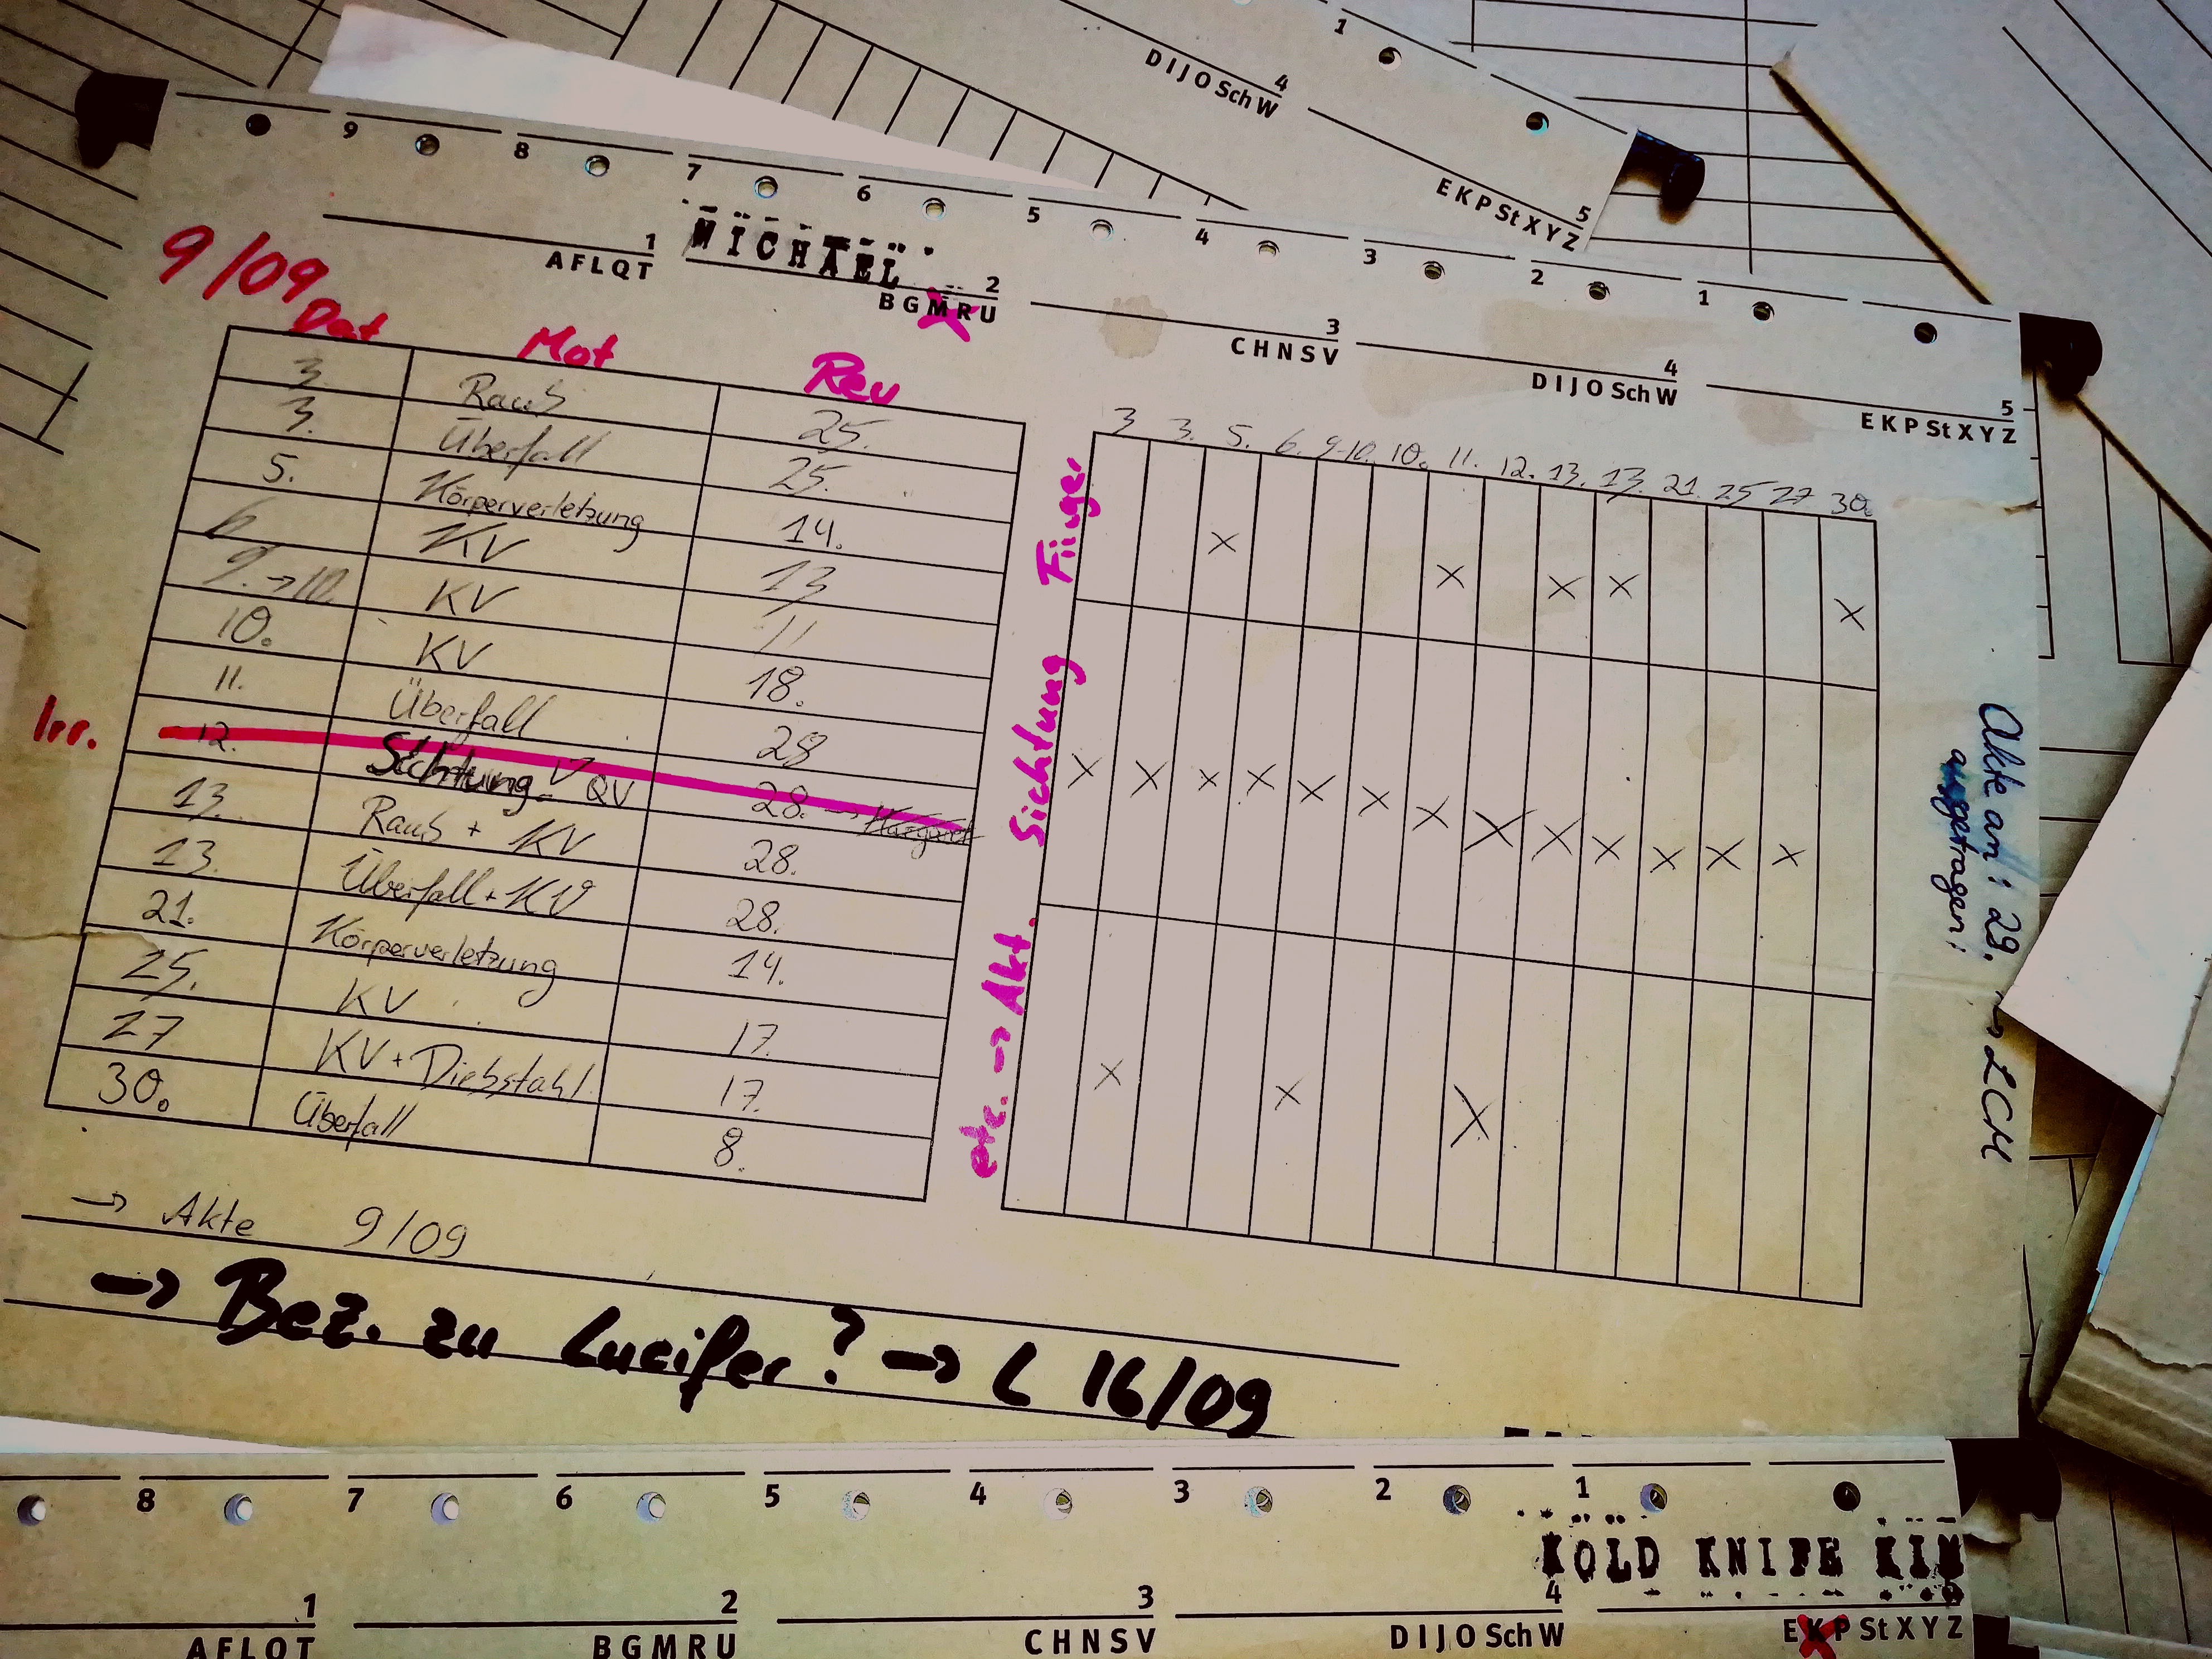 1
4
DIJO Sch W
5
EKP St XYZ
9 8 7 6 5 4 3 2 1
MICHAEL
1
AFLQT
2
BGMRU
3
CHNSV
4
DIJO Sch W
5
EKP St XYZ
9/09
Dat Mot Rev
3. Raub 25.
3. Überfall 25.
5. Körperverletzung 14.
6 KV 13
9. → 10. KV 11
10. KV 18.
11. Überfall 28
Irr. 12. Sichtung QV 28. →
13. Raub + KV 28.
13. Überfall + KV 28.
21. Körperverletzung 14.
25. KV 17.
27 KV + Diebstahl 17.
30. Überfall 8.
3 3. 5. 6. 9-10. 10. 11. 12. 13. 13. 21. 25 27 30.
Finger
x x x x x
Sichtung
x x x x x x x x x x x x x
etc. → Akt.
x x x
Akte am: 29. → LCM
ausgetragen:
→ Akte 9/09
→ Bez. zu Lucifer? → L 16/09
8 7 6 5 4 3 2 1
KOLD KNIFE KIM
1
AFLQT
2
BGMRU
3
CHNSV
4
DIJO Sch W
EKP St XYZ